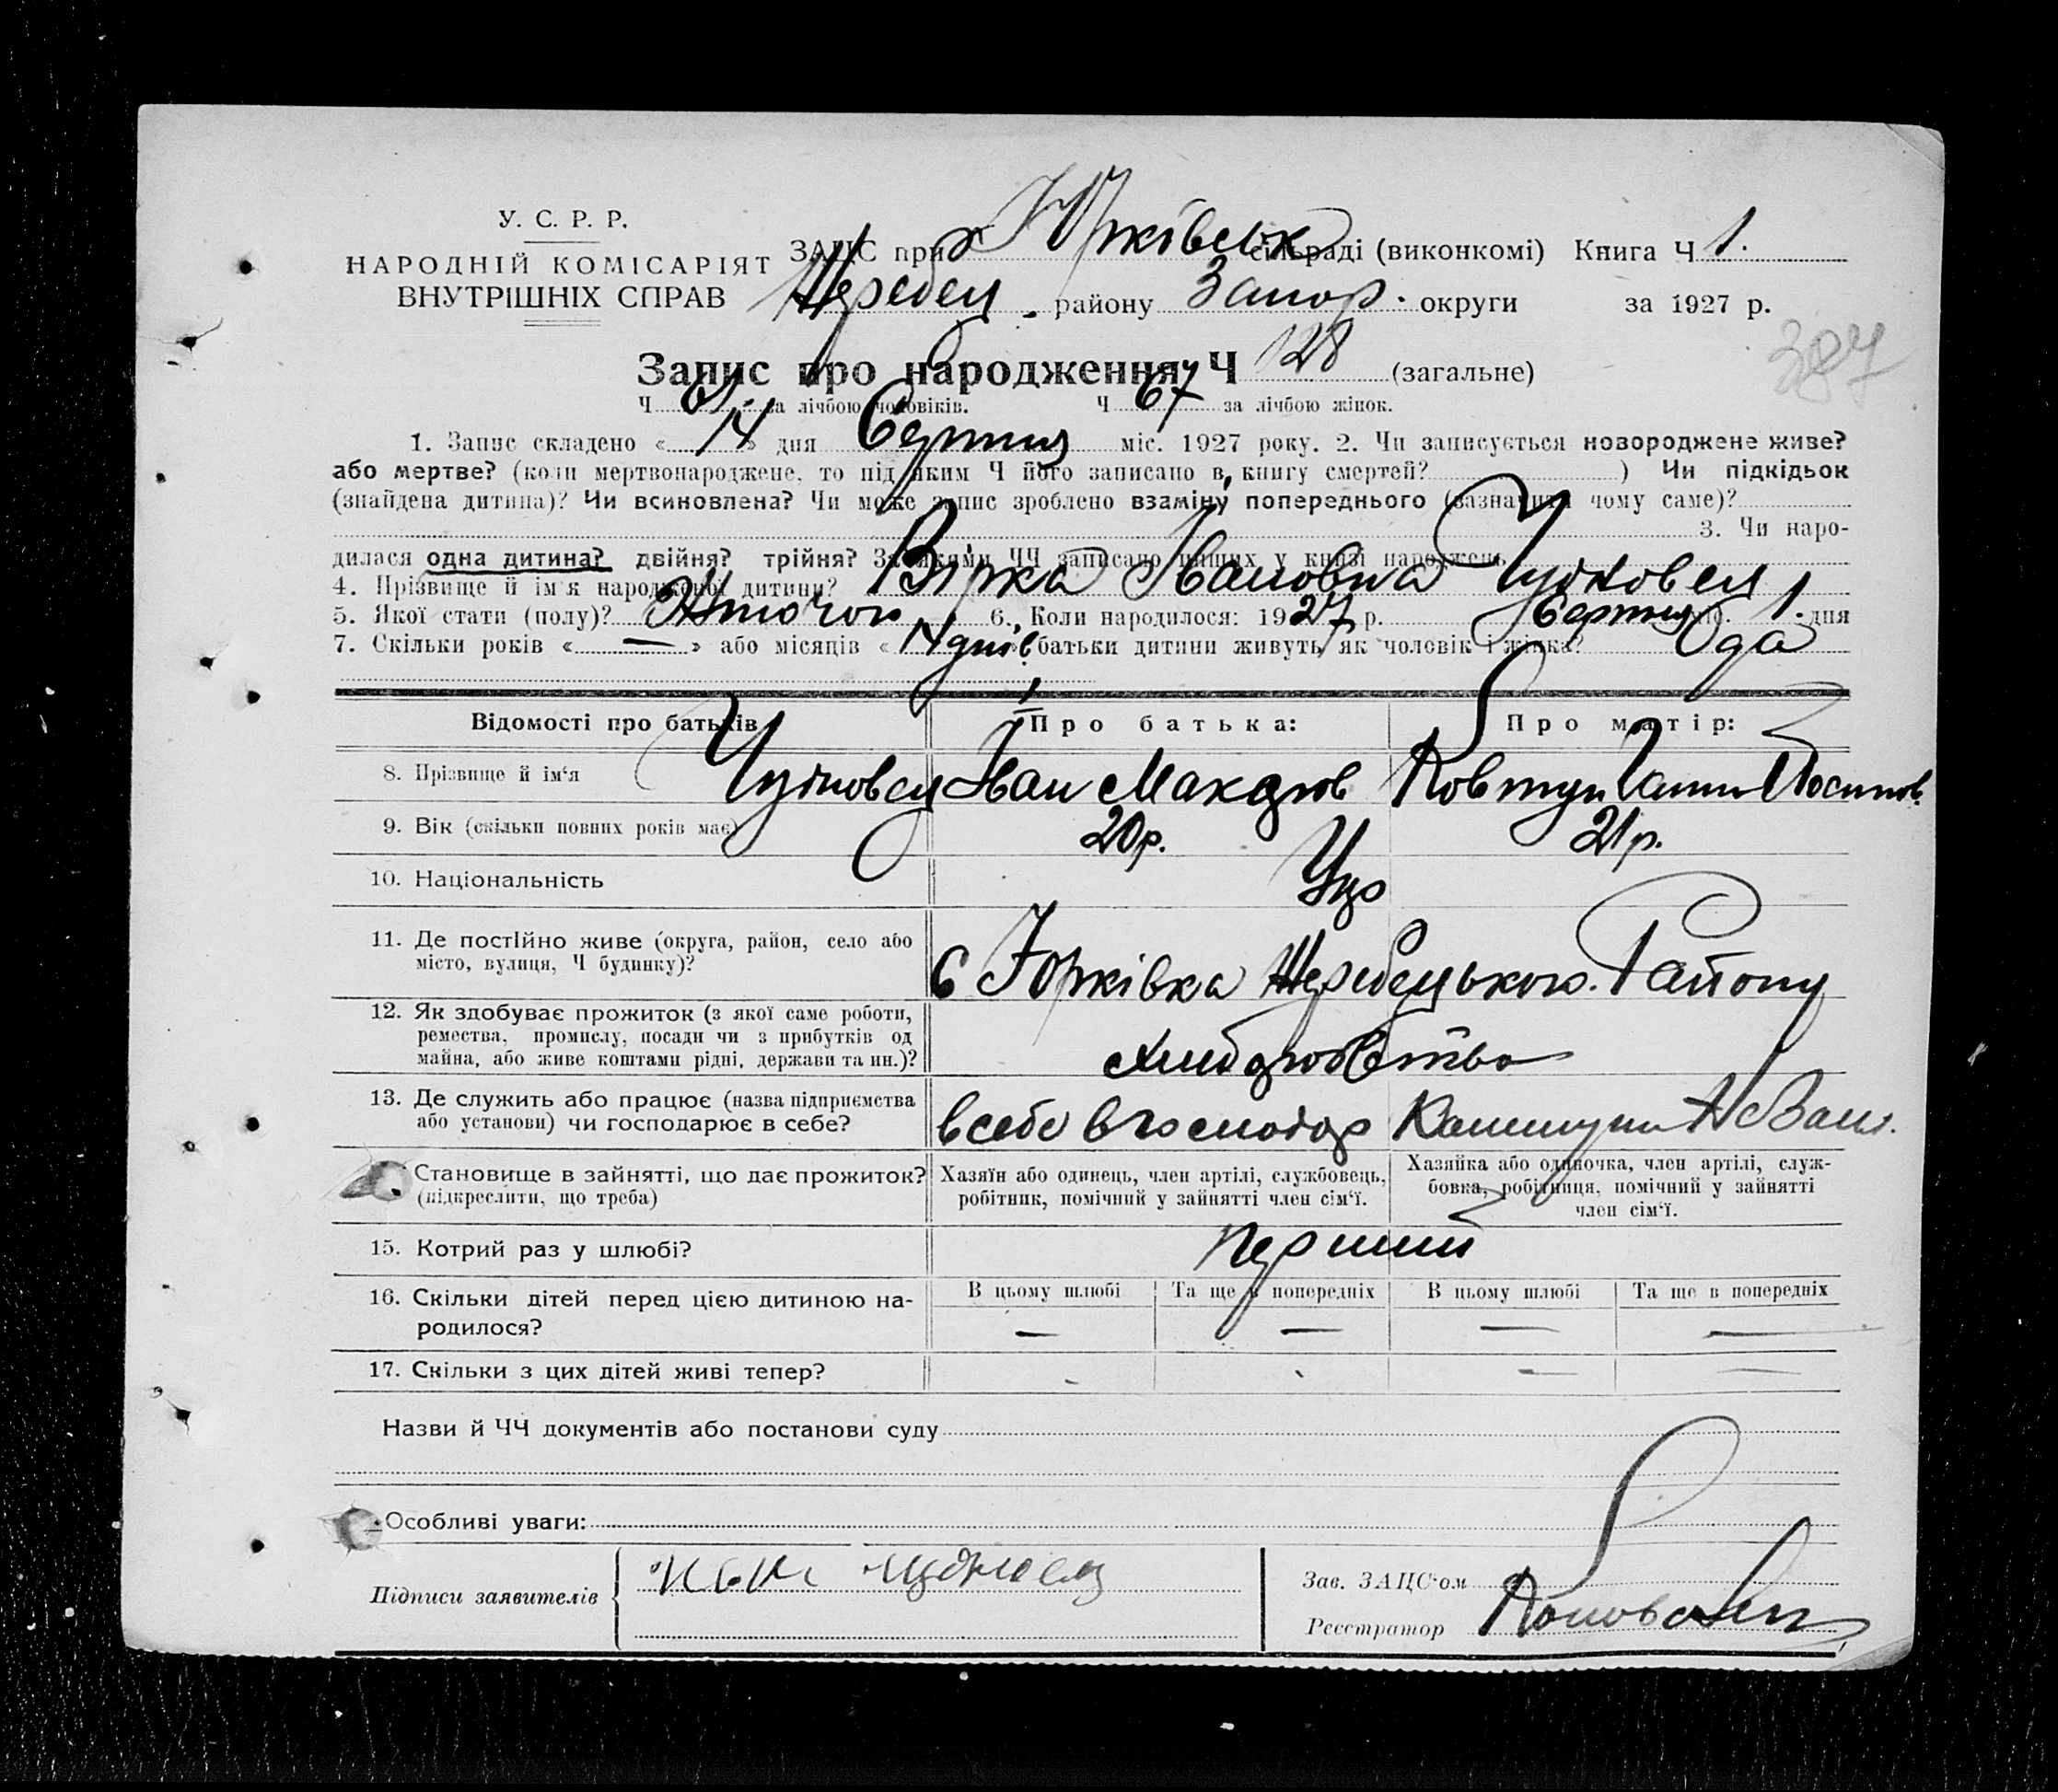 У. С. Р. Р.
НАРОДНІЙ КОМІСАРІЯТ
ВНУТРІШНІХ СПРАВ
ЗАЦС при Юрківськ сільраді (виконкомі) Книга Ч 1.
Жеребец. району Запор. округи за 1927 р.
387
Запис про народження Ч 128 (загальне)
Ч 61 за лічбою чоловіків. Ч 67 за лічбою жінок.
1. Запис складено «14» дня Серпня міс. 1927 року. 2. Чи записується новороджене живе?
або мертве? (коли мертвонароджене, то під яким Ч його записано в книгу смертей? ) Чи підкідьок
(знайдена дитина)? Чи всиновлена? Чи може запис зроблено взаміну попереднього (зазначити чому саме)?
3. Чи наро-
дилася одна дитина? двійня? трійня? За якими ЧЧ записано инших у книзі народжень
4. Прізвище й ім'я народженої дитини? Вірка Івановна
5. Якої статі (полу)? Жіночої 6. Коли народилося: 1927 р. Серпня міс. 1. дня
7. Скільки років « — » або місяців « 14 днів » батьки дитини живуть як чоловік і жінка? Да
Відомості про батьків Про батька: Про матір:
8. Прізвище й ім‘я Іван Ковтун Ганна
9. Вік (скільки повних років має) 20р. 21р.
10. Національність Укр
11. Де постійно живе (округа, район, село або
місто, вулиця, Ч будинку)?
с Юрківка Жеребецького Району
12. Як здобуває прожиток (з якої саме роботи,
ремества, промислу, посади чи з прибутків од
майна, або живе коштами рідні, держави та ин.)?
хліборобство
13. Де служить або працює (назва підприємства
або установи) чи господарює в себе?
в себе в господар
Становище в зайнятті, що дає прожиток?
(підкреслити, що треба)
Хазяїн або одинець, член артілі, службовець,
робітник, помічний у зайнятті член сім‘ї.
Хазяйка або одиночка, член артілі, служ-
бовка, робітниця, помічний у зайнятті
член сім‘ї.
15. Котрий раз у шлюбі? Перший
16. Скільки дітей перед цією дитиною на-
родилося?
В цьому шлюбі Та ще в попередніх В цьому шлюбі Та ще в попередніх
— — — —
17. Скільки з цих дітей живі тепер? - - — —
Назви й ЧЧ документів або постанови суду
Особливі уваги:
Підписи заявителів
Зав. ЗАЦС‘ом
Реєстратор